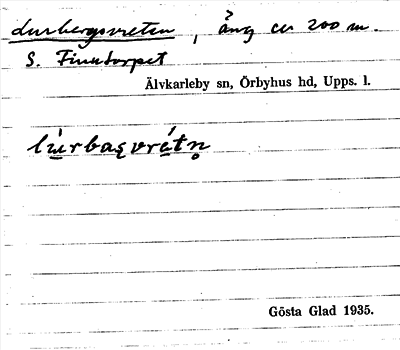 Lurbergsvreten, äng ca 200 m.
S. Finntorpet
Älvkarleby sn, Örbyhus hd, Upps. l.
lùrbasvrétn̥
Gösta Glad 1935.